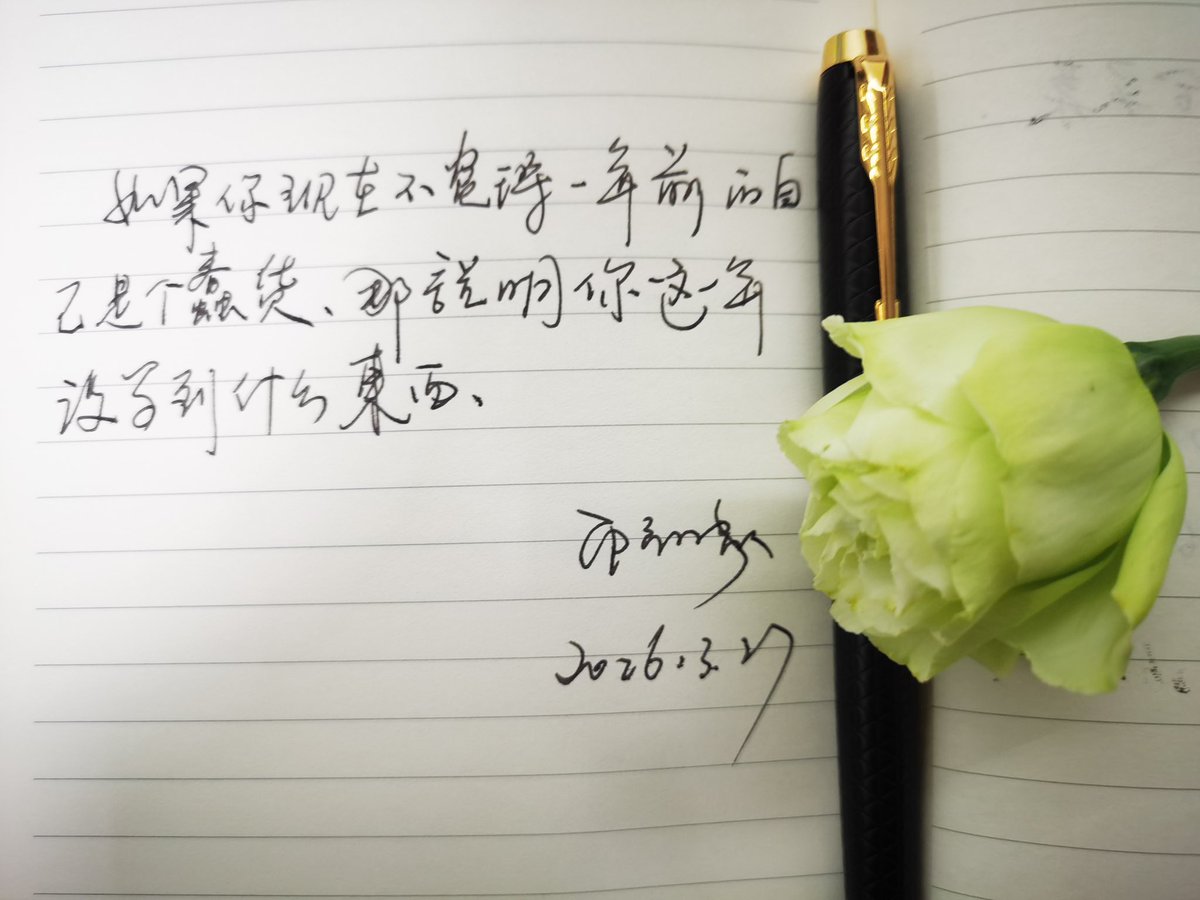 如果你现在不觉得一年前的自
己是个蠢货、那說明你这一年
没学到什么東西、
2026.3.27